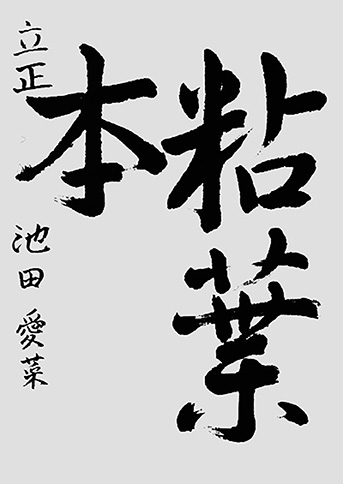 粘葉
本
立正 池田愛菜